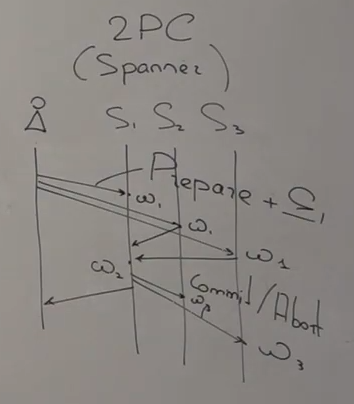 2PC
(Spanner)
S₁ S₂ S₃
Prepare + S₁
ω₁
ω₁
ω₁
ω₂
Commit/Abort
ω₃